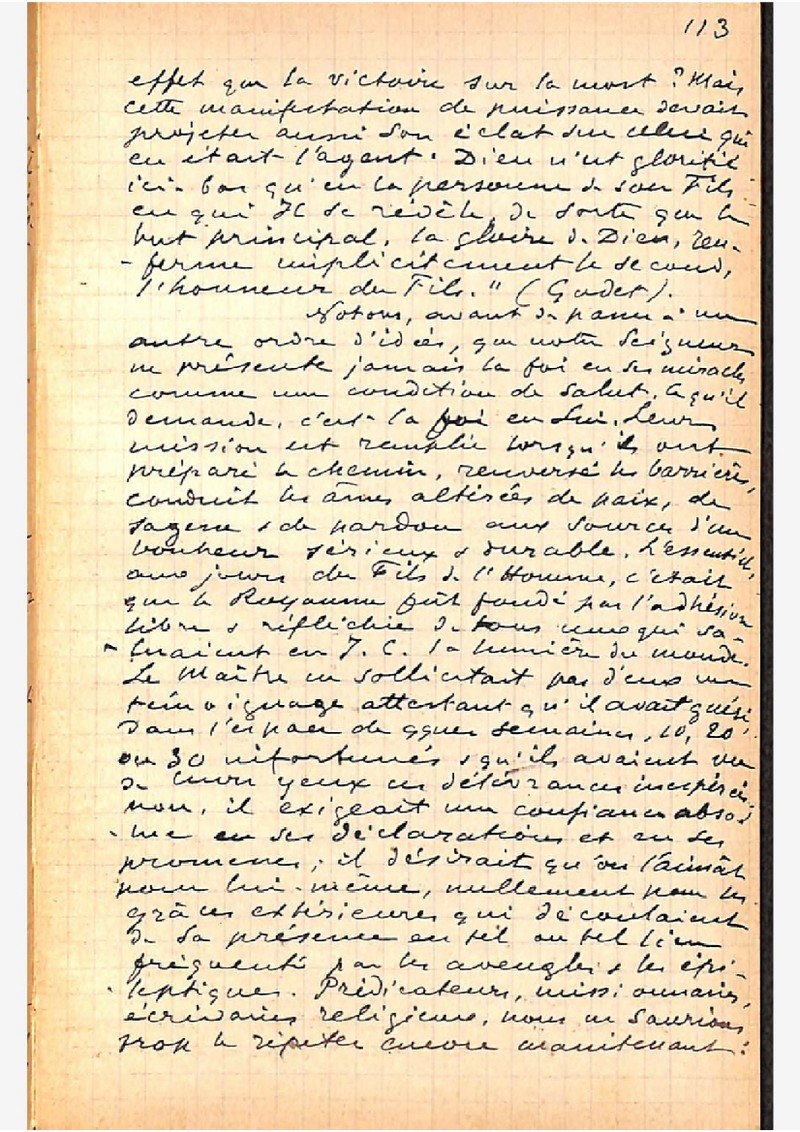 113
effet que la victoire sur la mort ? Mais
cette manifestation de puissance devait
projeter aussi son éclat sur celui qui
en était l'agent. Dieu n'est glorifié
ici-bas qu'en la personne de son Fils
en qui Il se révèle, de sorte que le
but principal, la gloire de Dieu, ren-
-ferme implicitement le second,
l'honneur du Fils." (Godet).
Notons, avant de passer à un
autre ordre d'idées, que notre Seigneur
ne présente jamais la foi en ses miracles
comme une condition de salut. Ce qu'il
demande, c'est la foi en Lui. Leur
mission est remplie lorsqu'ils ont
préparé le chemin, renversé les barrières,
conduit les âmes altérées de paix, de
sagesse & de pardon aux sources d'un
bonheur sérieux & durable. L'essentiel,
aux jours du Fils de l'Homme, c'était
que le Royaume fût fondé par l'adhésion
libre & réfléchie de tous ceux qui sa-
-luaient en J. C. la lumière du monde.
Le Maître ne sollicitait pas d'eux un
témoignage attestant qu'il avait guéri
dans l'espace de qques semaines, 10, 20
ou 30 infortunés & qu'ils avaient vu
de leurs yeux ces délivrances inespérées,
non, il exigeait une confiance abso-
-lue en ses déclarations et en ses
promesses ; il désirait qu'on l'aimât
pour lui-même, nullement pour les
grâces extérieures qui découlaient
de sa présence en tel ou tel lieu
fréquenté par les aveugles & les épi-
-leptiques. Prédicateurs, missionnaires,
écrivains religieux, nous ne saurions
trop le répéter encore maintenant :